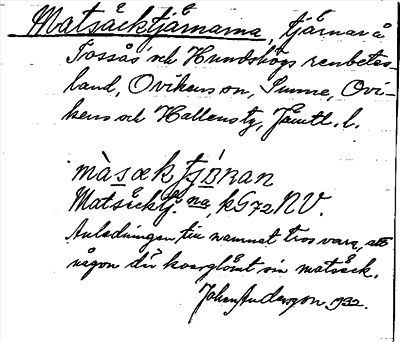 Matsäcktjärnarna, tjärnar å
Tossås och Hundshögs renbetes-
land, Ovikens sn, Sunne, Ovi-
kens och Hallens tg, Jämtl. l.
màsæktjɒ̀ṛan
Matsäcktj. na, kG72 NV.
Anledningen till namnet tros vara, att
någon där kvarglömt sin matsäck.
Johan Anderzon 1932.